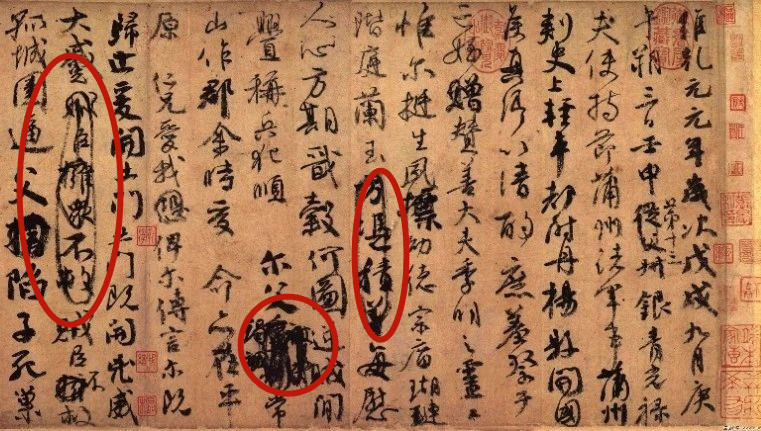 維乾元元年歲次戊戌九月庚
午朔三日壬申第十三從父銀青光祿
夫使持節蒲州諸軍事蒲州
刺史上輕車都尉丹楊縣開國
侯真卿以清酌庶羞祭于
亡姪贈贊善大夫季明之靈曰
惟爾挺生夙標幼德宗廟瑚璉
階庭蘭玉方憑積善每慰
人心方期戩穀何圖逆賊間
釁稱兵犯順爾父常
山作郡余時受命亦在平
原仁兄愛我俾爾傳言爾既
歸止爰開土門土門既開兇威
大蹙賊臣擁衆不救賊臣不救
孤城圍逼父陷子死巢